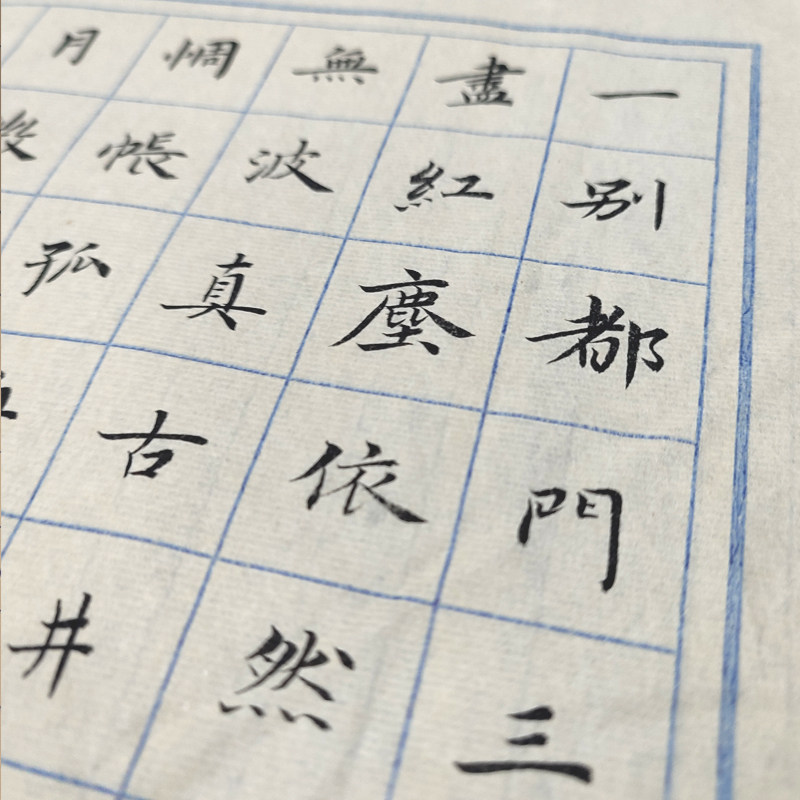 一别都門三
盡紅塵依然
無波真古井
惆悵孤
月